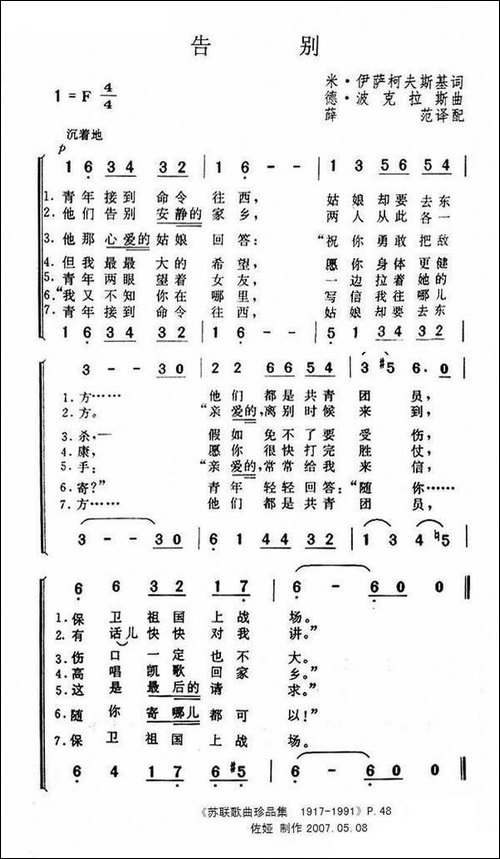 告 别
1 = F 4/4
米·伊萨柯夫斯基词
德·波克拉斯曲
薛 范译配
沉着地
p
1 6 34 32 | 1 - - - | 1 3 56 54 |
1.青年接到 命令 往西， 姑娘却要去东
2.他们告别 安静的家乡， 两人从此各一
3.他那心爱的姑娘 回答： “祝你勇敢把敌
4.但我最最 大的 希望， 愿你身体更健
5.青年两眼 望着 女友， 一边拉着她的
6.“我又不知 你在 哪里， 写信我往哪儿
7.青年接到 命令 往西， 姑娘却要去东
1 6 34 32 | 1 - - - | 5 1 34 32 |
3 - - 30 | 22 66 54 | 3 #5 6. 0 |
1.方…… 他们 都是共青 团 员，
2.方。 “亲 爱的，离别时候 来 到，
3.杀，— 假如 免不了要 受 伤，
4.康， 愿你 很快打完 胜 仗，
5.手： “亲 爱的，常常给我 来 信，
6.寄？” 青年 轻轻回答：“随 你……
7.方…… 他们 都是共青 团 员，
3 - - 30 | 61 44 32 | 1 3 4 ♮5 |
6 6 32 17 | 6 - 60 0 ‖
1.保 卫 祖国 上战 场。
2.有 话儿 快快 对我 讲。”
3.伤 口 一定 也不 大。
4.高 唱 凯歌 回家 乡。”
5.这 是 最后的请 求。”
6.随 你 寄哪儿都可 以！”
7.保 卫 祖国 上战 场。
6 4 17 6#5 | 6 - 60 0 ‖
《苏联歌曲珍品集 1917-1991》P.48
佐娅 制作 2007.05.08